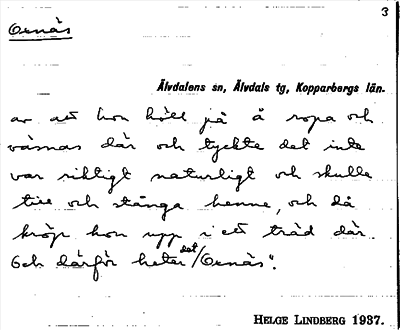 3
Ornäs
Älvdalens sn, Älvdals tg, Kopparbergs län.
av att hon höll på å ropa och
väsnas där och tyckte det inte
var riktigt naturligt och skulle
till och stånga henne, och då
kröp hon upp i ett träd där.
Och därför heter det "Ornäs".
HELGE LINDBERG 1937.